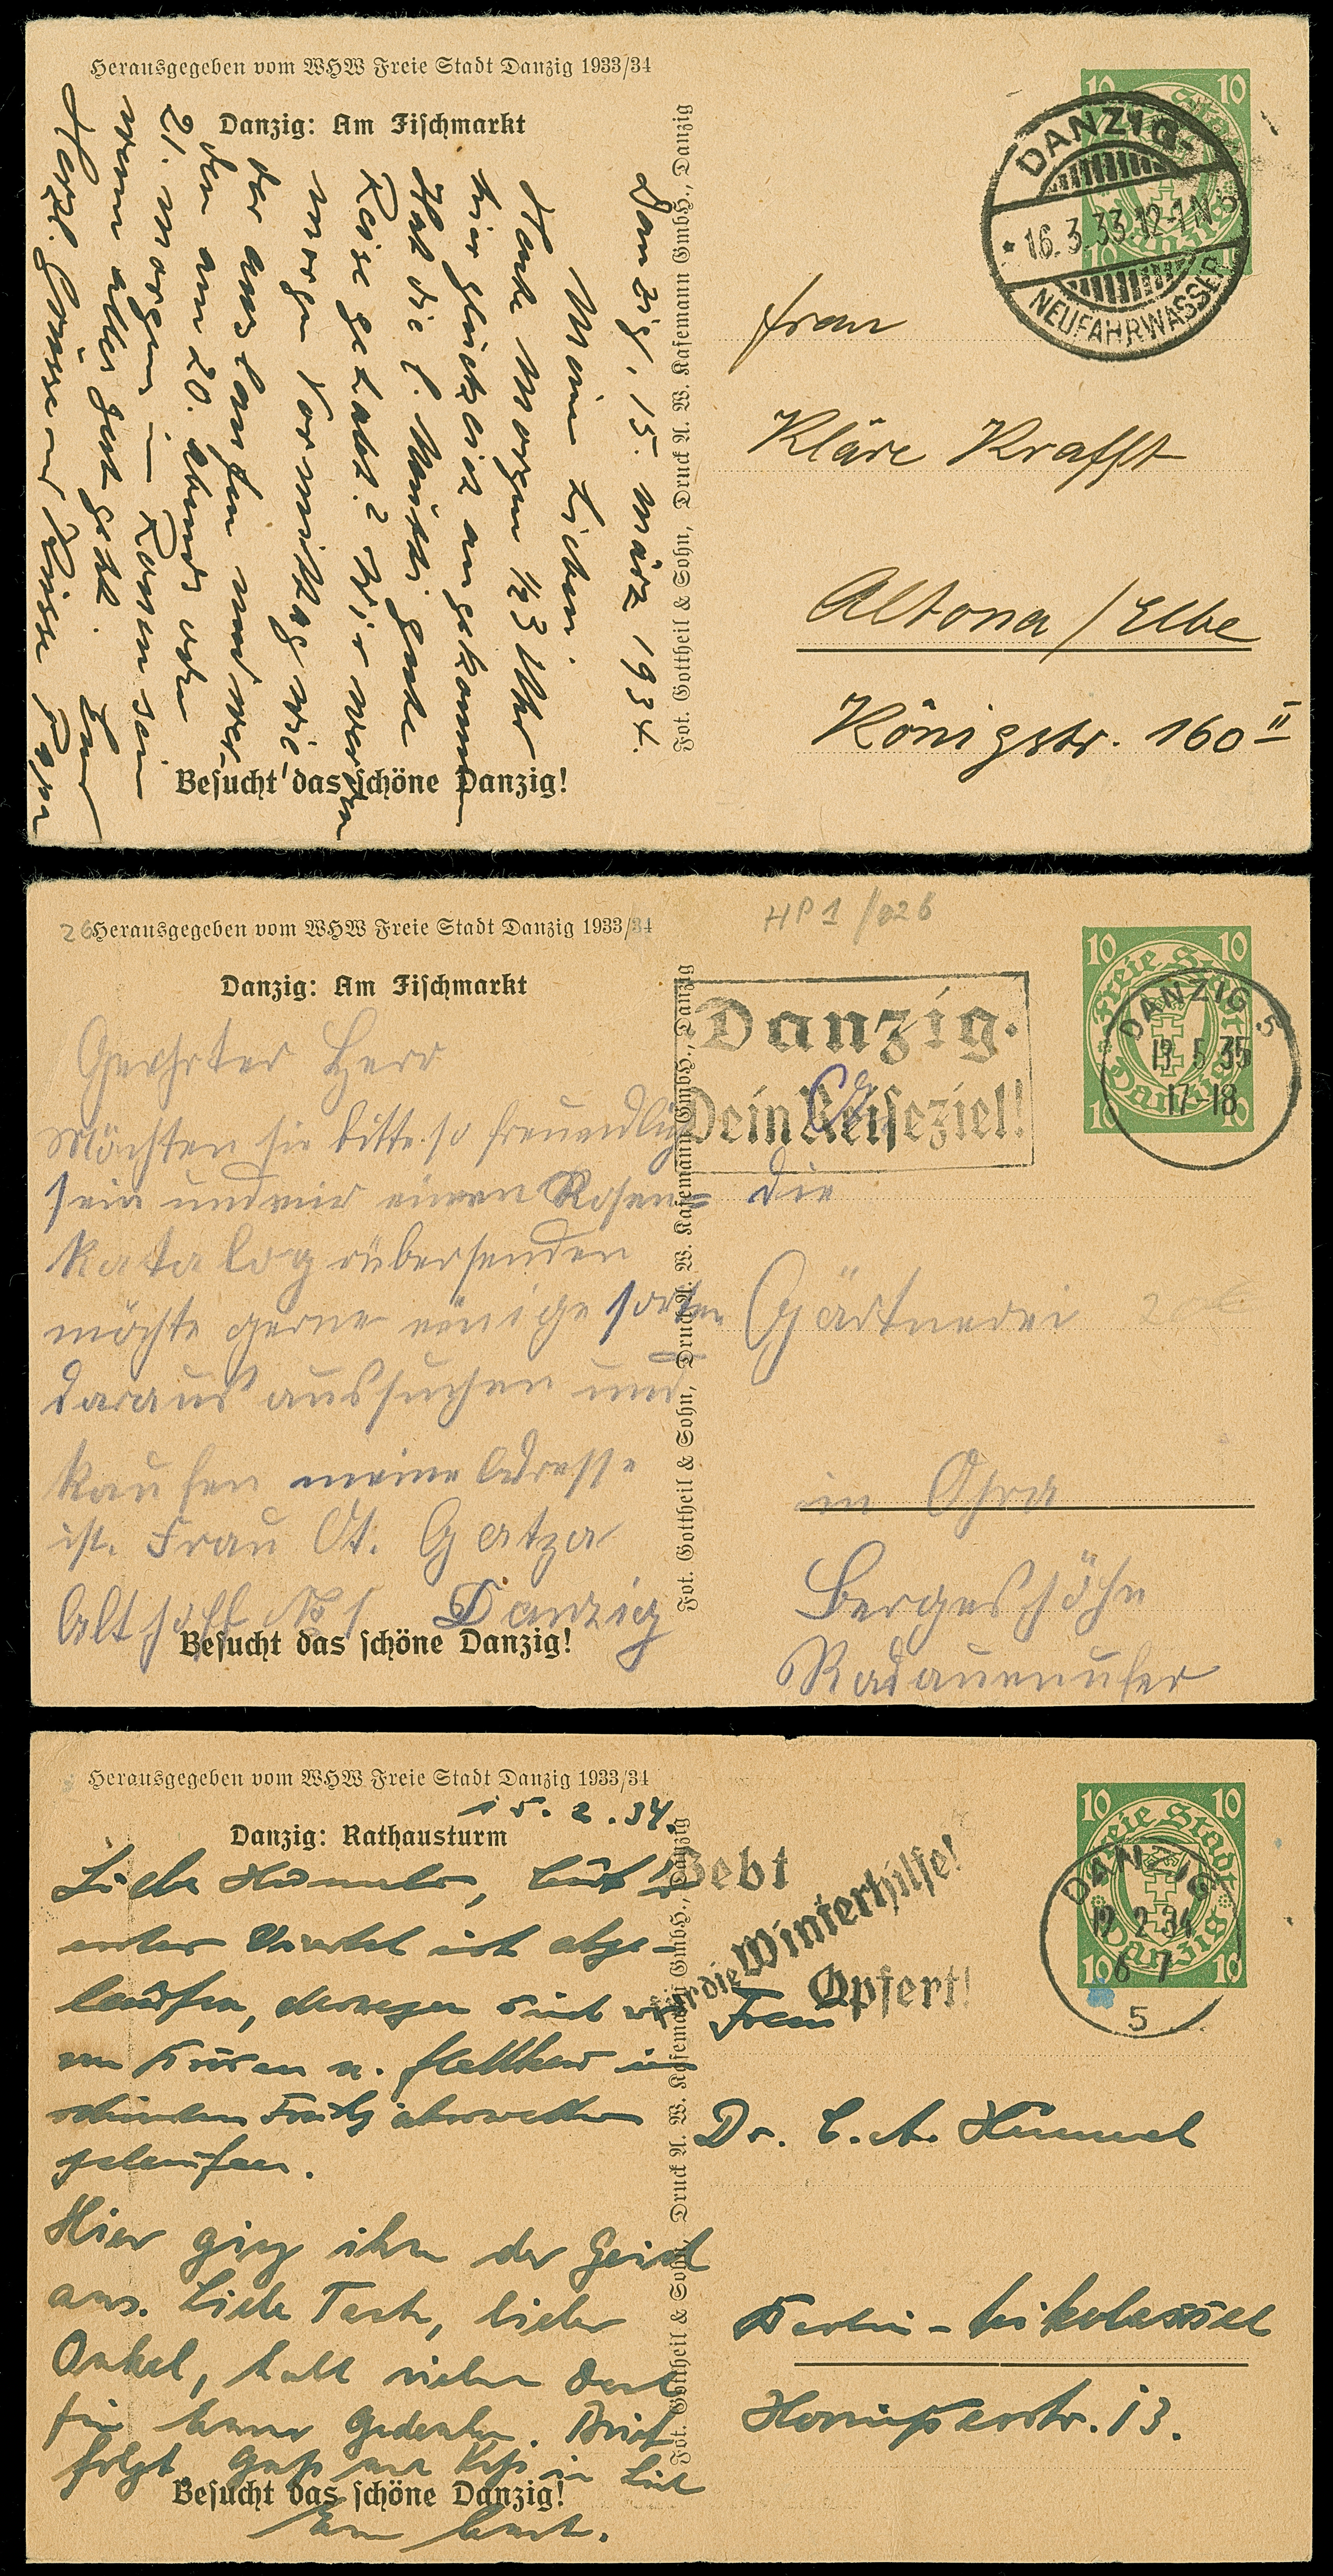 Herausgegeben vom WHW Freie Stadt Danzig 1933/34
Danzig: Am Fischmarkt
Danzig, 15. März 1934.
Meine Lieben.
Heute Morgen ½3 Uhr
hier glücklich angekommen
Hat die l. Mutti gute
Reise gehabt? Wir werden
morgen Vormittag wie
der auslaufen und wer
den am 20. abends oder
21. morgens in
wenn alles gut geht.
Herzl. Grüsse und Küsse Papa
Besucht das schöne Danzig!
Fot. Gottheil & Sohn, Druck A. W. Kafemann GmbH., Danzig
10 10
Danzig
10
DANZIG-
* 16.3.33.12-1N
NEUFAHRWASSER
Frau
Kläre Krafft
Altona / Elbe
Königstr. 160 II
26
Herausgegeben vom WHW Freie Stadt Danzig 1933/34
HP 1 /026
Danzig: Am Fischmarkt
Geehrter Herr
Möchten sie bitte so freuendlig
sein und mir einen Rosen=
katalog rübersenden
möchte gerne einige sorten
daraus aussuchen und
kaufen meine Adresse
ist. Frau Ot. Gatza
Althoff No 1 Danzig
Besucht das schöne Danzig!
Fot. Gottheil & Sohn, Druck A. W. Kafemann GmbH., Danzig
Danzig.
Dein Reiseziel!
10 10
Freie Stadt
Danzig
10 10
DANZIG 5
13 5 35
17-18
die
Gärtnerei
in Ohra
Bergeshöhe
Radauenufer
Herausgegeben vom WHW Freie Stadt Danzig 1933/34
15.2.34.
Danzig: Rathausturm
Liebe Hummler,
erster Viertel ist abge-
laufen, deswegen sind wir
von
gelaufen.
Hier ging ihm der Geist
aus. Liebe Tante, lieber
Onkel, habt vielen Dank
für Euer Gedenken. Brief
folgt. Gruß und Kuß in Liebe
Besucht das schöne Danzig!
Fot. Gottheil & Sohn, Druck A. W. Kafemann GmbH., Danzig
Gebt
für die Winterhilfe!
Opfert!
10 10
Freie Stadt
Danzig
10 10
DANZIG
2 34
6 7
5
Frau
Dr. C. A. Himmel
Berlin - Nikolassee
13.